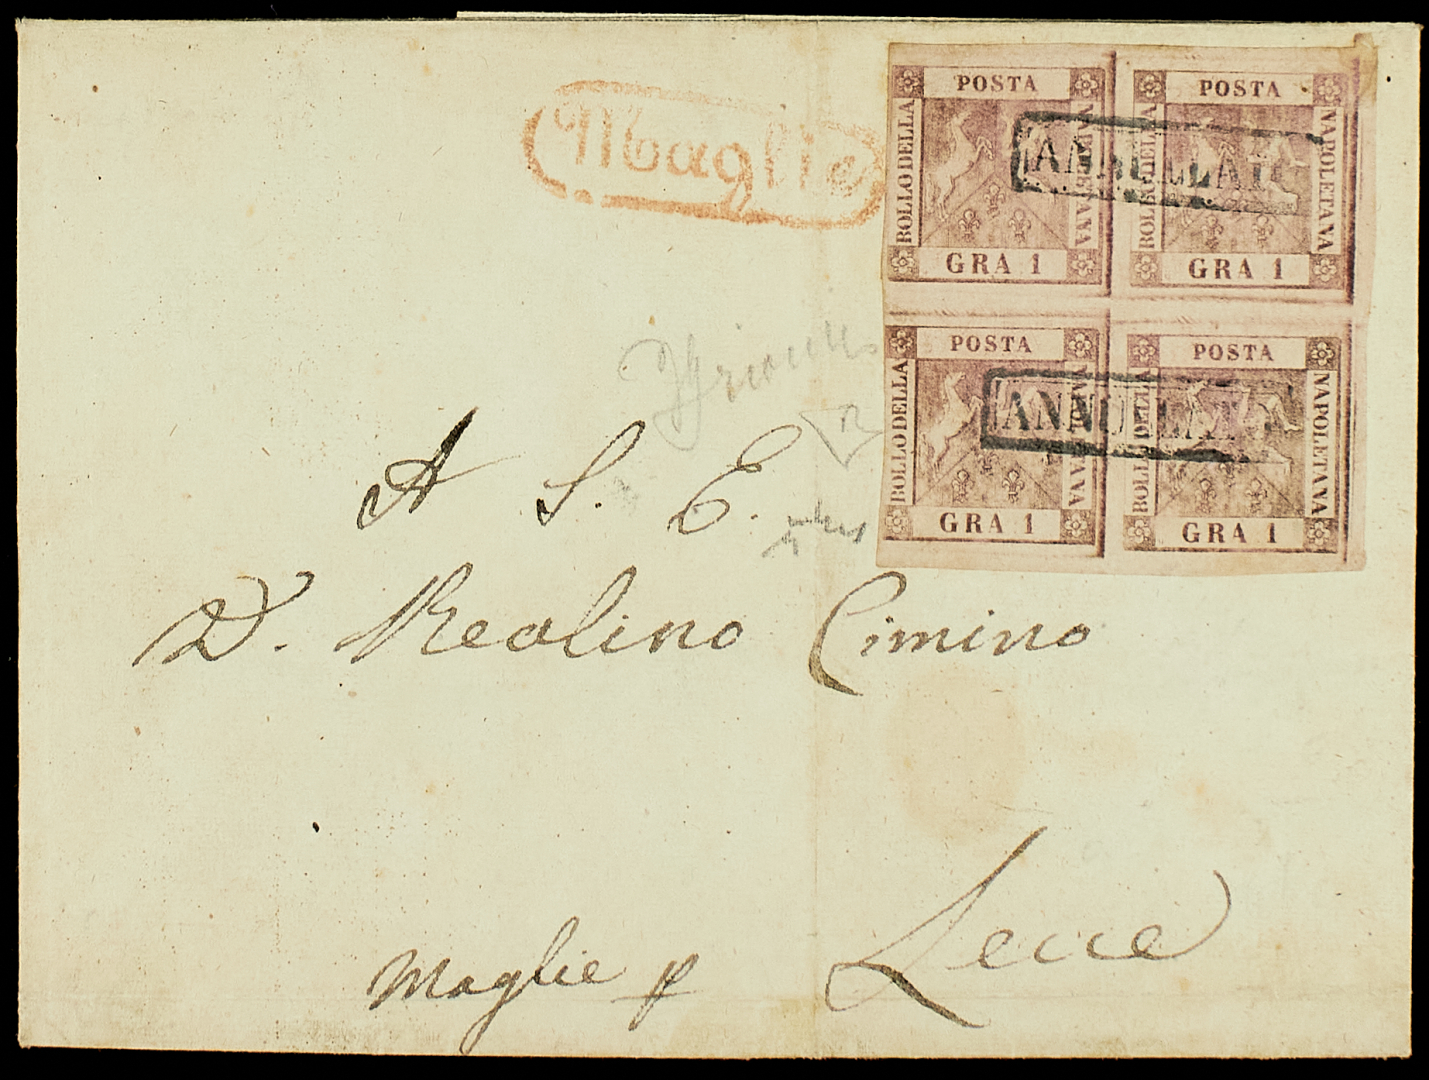 Maglie
POSTA
BOLLO DELLA
NAPOLETANA
GRA 1
POSTA
BOLLO DELLA
NAPOLETANA
GRA 1
ANNULLAT
POSTA
BOLLO DELLA
NAPOLETANA
GRA 1
POSTA
BOLLO DELLA
NAPOLETANA
GRA 1
ANNULLAT
A S. E.
D. Realino Cimino
Maglie p Lecce